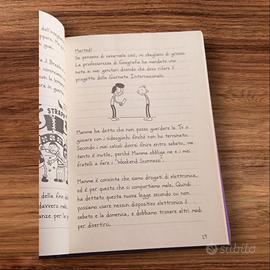 Martedì
Se pensavo di cavarmela così, mi sbagliavo di grosso.
La professoressa di Geografia ha mandato una
nota ai miei genitori che devo rifare il
progetto delle Giornate Internazionali.
Mamma ha detto che non posso guardare la Tv o
giocare con i videogiochi finché non ho terminato.
Secondo i miei calcoli dovrei finire entro sabato, ma
tanto è inutile, perché Mamma obbliga me e i miei
fratelli a fare i "Weekend Scomessi".
Mamma è convinta che siamo drogati di elettronica,
ed è per questo che ci comportiamo male. Quindi
ha dettato questa nuova legge secondo cui non
possiamo usare nessun dispositivo elettronico il
sabato e la domenica, e dobbiamo trovare altri modi
per divertirci.
19
subito